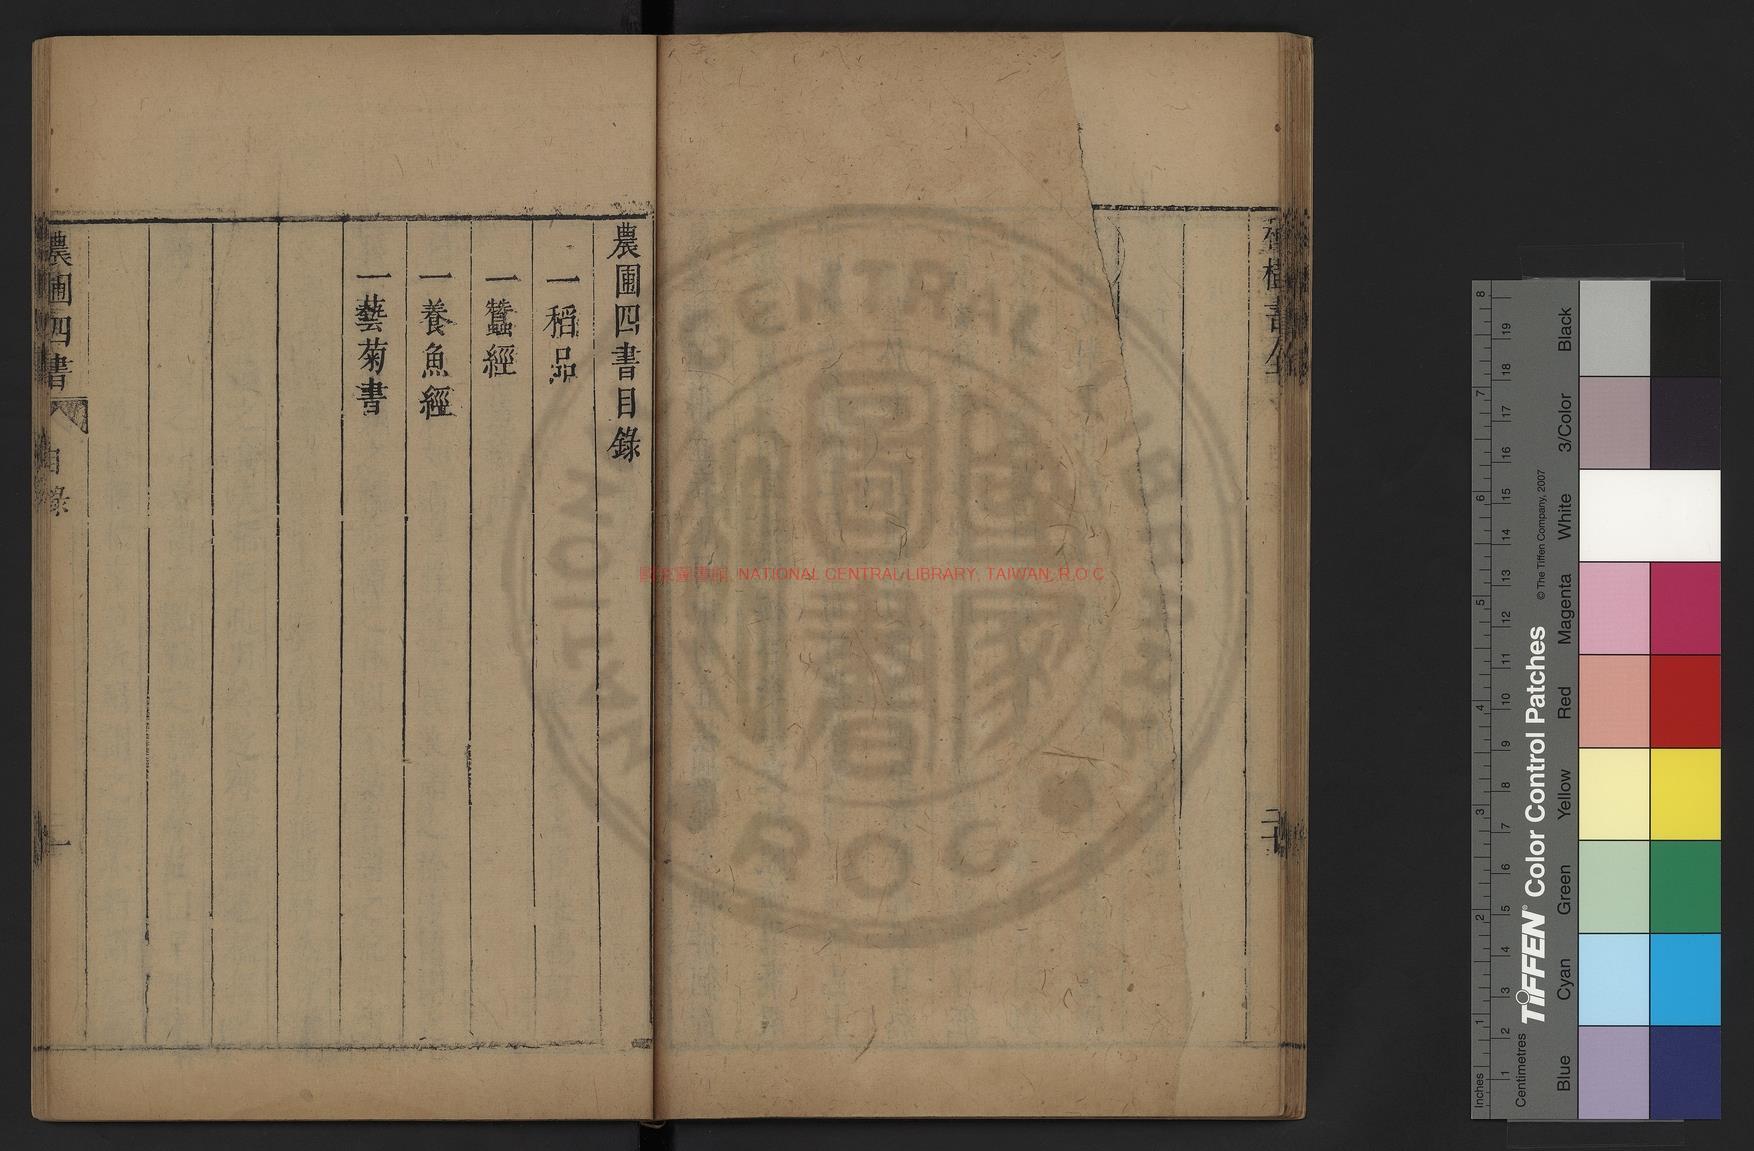 農圃四書目錄
一稻品
一蠶經
一養魚經
一藝菊書
農圃四書
目錄
一
種樹書
國家圖書館, NATIONAL CENTRAL LIBRARY, TAIWAN, R.O.C
Inches
1 2 3 4 5 6 7 8
Centimetres
1 2 3 4 5 6 7 8 9 10 11 12 13 14 15 16 17 18 19
TIFFEN® Color Control Patches
© The Tiffen Company, 2007
Blue
Cyan
Green
Yellow
Red
Magenta
White
3/Color
Black